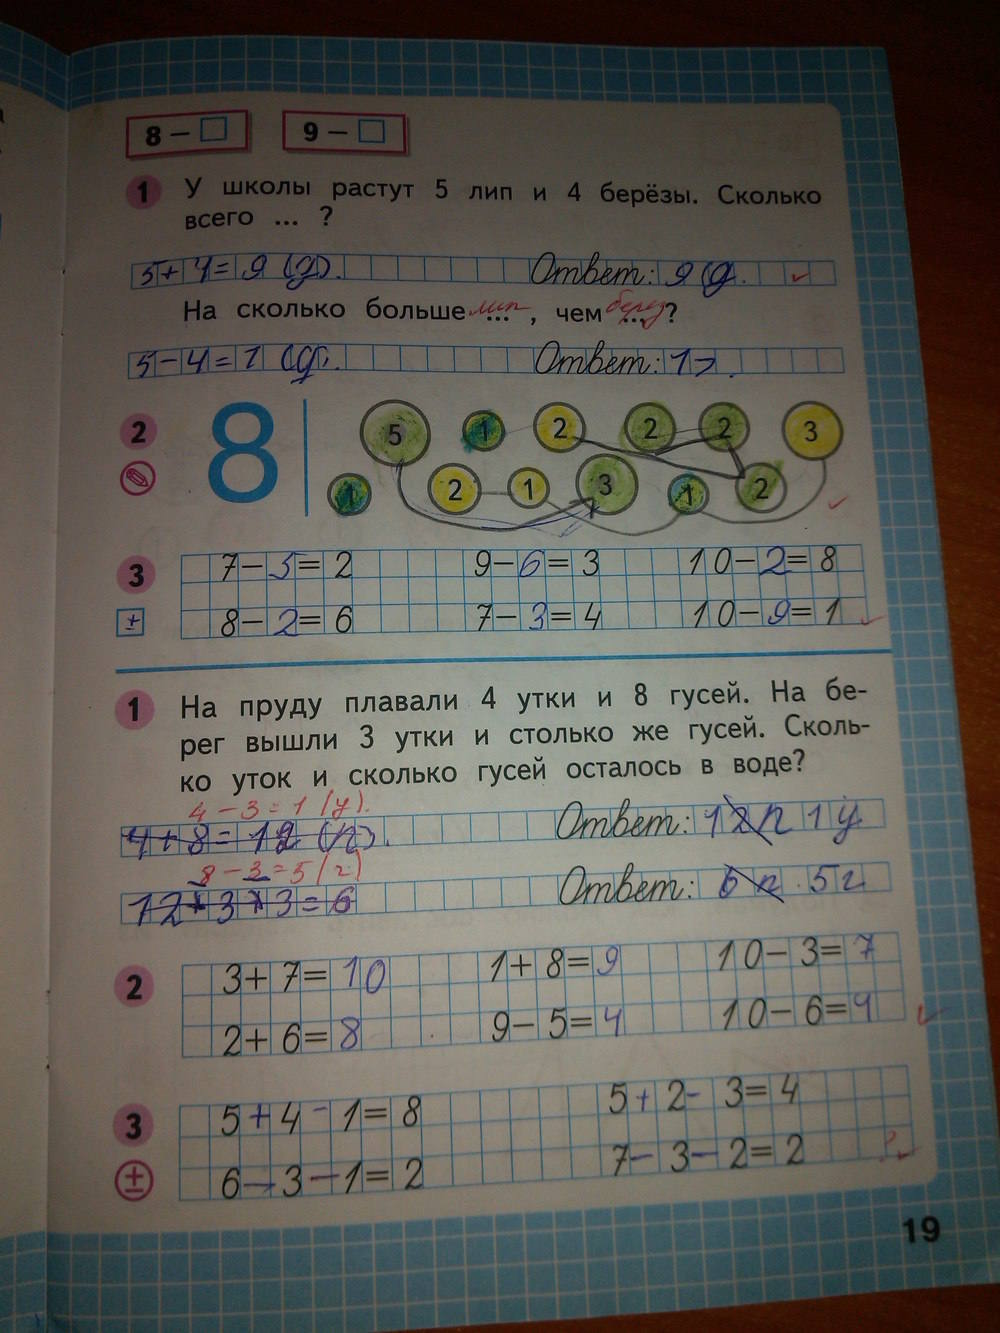 8 – □ 9 – □
1 У школы растут 5 лип и 4 берёзы. Сколько
всего ... ?
5+4=9 (д). Ответ: 9 (д.
На сколько больше лип ... , чем берез ... ?
5-4=1 (д). Ответ: 1
2 8 5 1 2 2 2 3
1 2 1 3 1 2
3 7-5=2 9-6=3 10-2=8
± 8-2=6 7-3=4 10-9=1
1 На пруду плавали 4 утки и 8 гусей. На бе-
рег вышли 3 утки и столько же гусей. Сколь-
ко уток и сколько гусей осталось в воде?
4-3=1 (у).
4+8=12 (п). Ответ: 12п 1у
8-3=5 (г)
12+3+3=6 Ответ: 6 п. 5г
2 3+7=10 1+8=9 10-3=7
2+6=8 9-5=4 10-6=4
3 5+4-1=8 5+2-3=4
± 6-3-1=2 7-3-2=2
19